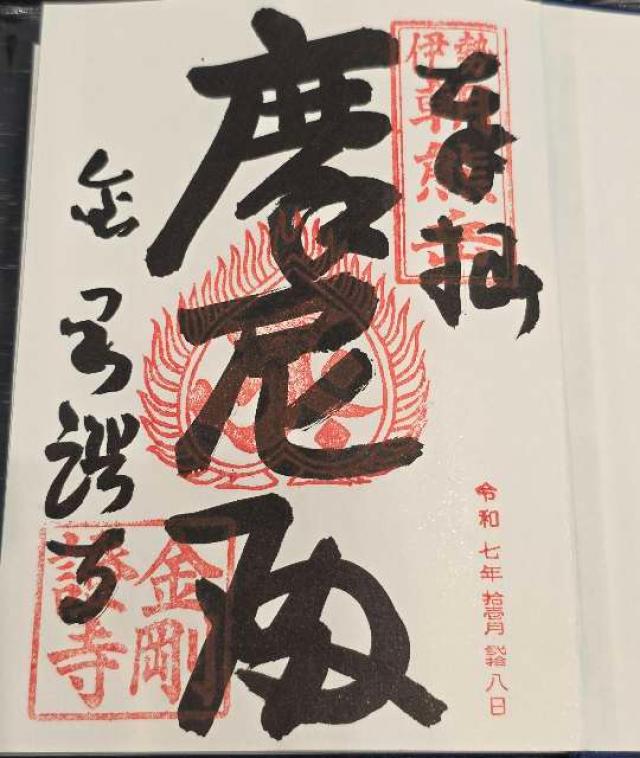 奉拝
伊勢
朝熊岳
摩尼殿
金剛證寺
金剛
證寺
令和七年拾壱月弐拾八日